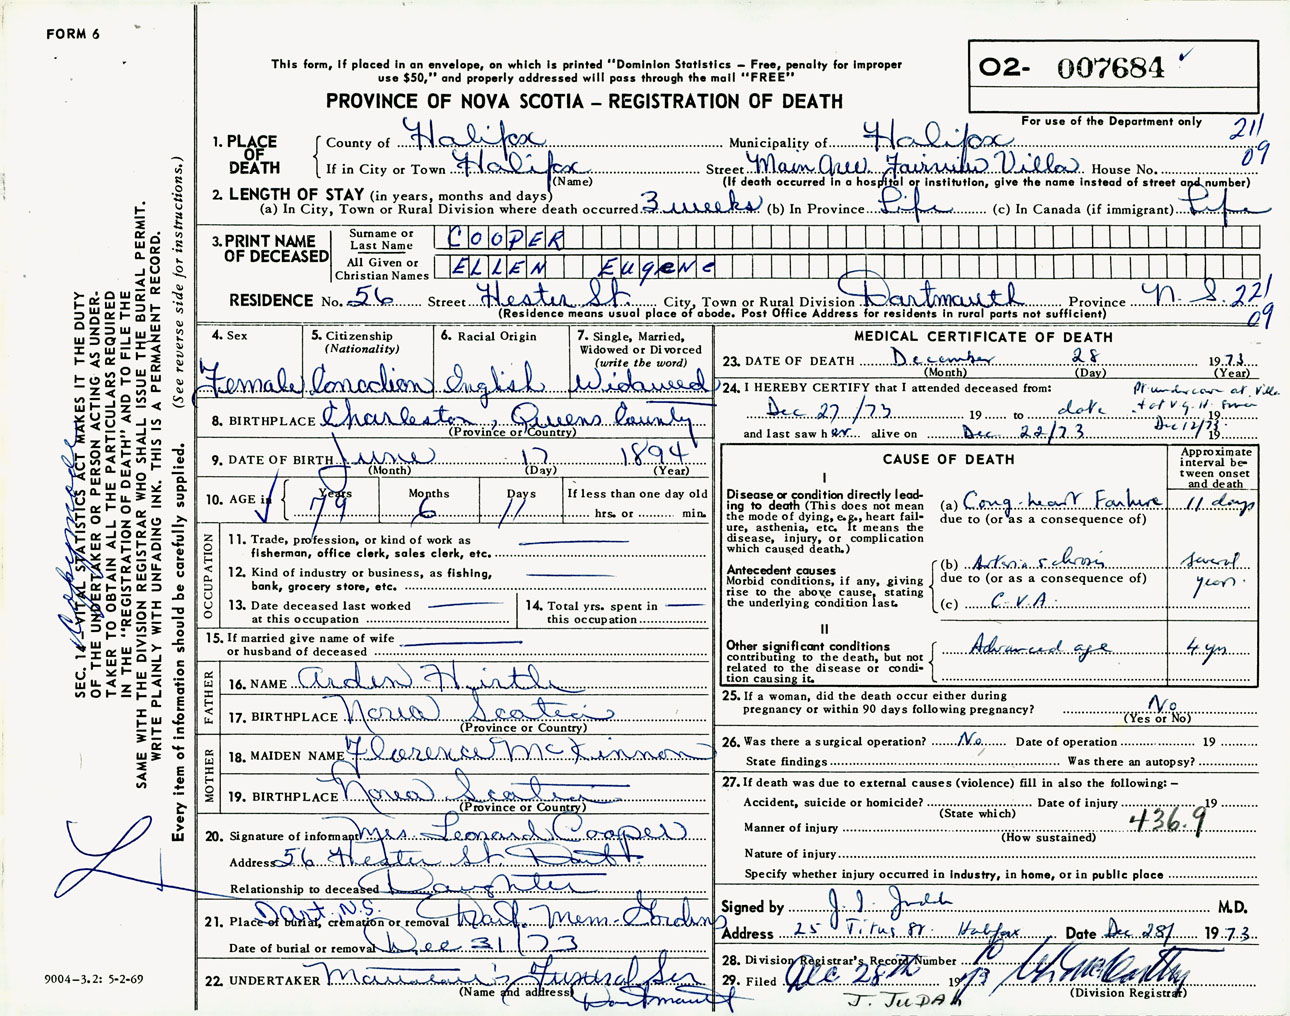 FORM 6
This form, if placed in an envelope, on which is printed "Dominion Statistics – Free, penalty for improper
use $50," and properly addressed will pass through the mail "FREE"
PROVINCE OF NOVA SCOTIA – REGISTRATION OF DEATH
O2- 007684
For use of the Department only
211
09
1. PLACE OF DEATH
County of Halifax Municipality of Halifax
If in City or Town Halifax Street Main Ave Fairview Villa House No.
(Name) (If death occurred in a hospital or institution, give the name instead of street and number)
2. LENGTH OF STAY (in years, months and days)
(a) In City, Town or Rural Division where death occurred 3 weeks (b) In Province Life (c) In Canada (if immigrant) Life
3. PRINT NAME OF DECEASED
Surname or Last Name COOPER
All Given or Christian Names ELLEN EUgeNe
RESIDENCE No. 56 Street Hester St. City, Town or Rural Division Dartmouth Province N.S. 221
09
(Residence means usual place of abode. Post Office Address for residents in rural parts not sufficient)
4. Sex
Female
5. Citizenship (Nationality)
Canadian
6. Racial Origin
English
7. Single, Married, Widowed or Divorced (write the word)
Widowed
8. BIRTHPLACE Charleston, Queens County
(Province or Country)
9. DATE OF BIRTH June 17 1894
(Month) (Day) (Year)
10. AGE in Years Months Days If less than one day old
79 6 11 hrs. or min.
OCCUPATION
11. Trade, profession, or kind of work as
fisherman, office clerk, sales clerk, etc.
12. Kind of industry or business, as fishing,
bank, grocery store, etc.
13. Date deceased last worked
at this occupation
14. Total yrs. spent in
this occupation
15. If married give name of wife
or husband of deceased
FATHER
16. NAME Arden Hirtle
17. BIRTHPLACE Nova Scotia
(Province or Country)
MOTHER
18. MAIDEN NAME Florence McKinnon
19. BIRTHPLACE Nova Scotia
(Province or Country)
20. Signature of informant Mrs Leonard Cooper
Address 56 Hester St. Dart
Relationship to deceased Daughter
Dart. N.S.
21. Place of burial, cremation or removal Dart. Mem. Gardens
Date of burial or removal Dec 31/73
22. UNDERTAKER Funeral Ser
(Name and address) Dartmouth
MEDICAL CERTIFICATE OF DEATH
23. DATE OF DEATH December 28 1973
(Month) (Day) (Year)
24. I HEREBY CERTIFY that I attended deceased from: Pt under care at Villa
Dec 27/73 19 to date + at V.G.H. since 19
and last saw her alive on Dec. 22/73 Dec 12/73 19
CAUSE OF DEATH
Approximate interval between onset and death
I
Disease or condition directly leading to death (This does not mean the mode of dying, e.g., heart failure, asthenia, etc. It means the disease, injury, or complication which caused death.)
(a) Cong. heart Failure 11 days
due to (or as a consequence of)
Antecedent causes
Morbid conditions, if any, giving rise to the above cause, stating the underlying condition last.
(b) several years
due to (or as a consequence of)
(c) C.V.A.
II
Other significant conditions
contributing to the death, but not related to the disease or condition causing it.
Advanced age 4 yrs
25. If a woman, did the death occur either during
pregnancy or within 90 days following pregnancy? No
(Yes or No)
26. Was there a surgical operation? No. Date of operation 19
State findings Was there an autopsy?
27. If death was due to external causes (violence) fill in also the following: –
Accident, suicide or homicide? Date of injury 19
(State which)
436.9
Manner of injury
(How sustained)
Nature of injury
Specify whether injury occurred in industry, in home, or in public place
Signed by J. I. Judah M.D.
Address 25 Titus St. Halifax Date Dec 28/ 1973
28. Division Registrar's Record Number 10
29. Filed Dec 28th 1973
(Division Registrar)
J. JUDAH
SEC. 14 – VITAL STATISTICS ACT MAKES IT THE DUTY
OF THE UNDERTAKER OR PERSON ACTING AS UNDER-
TAKER TO OBTAIN ALL THE PARTICULARS REQUIRED
IN THE "REGISTRATION OF DEATH" AND TO FILE THE
SAME WITH THE DIVISION REGISTRAR WHO SHALL ISSUE THE BURIAL PERMIT.
WRITE PLAINLY WITH UNFADING INK. THIS IS A PERMANENT RECORD.
(See reverse side for instructions.)
Every item of information should be carefully supplied.
9004–3.2: 5-2-69